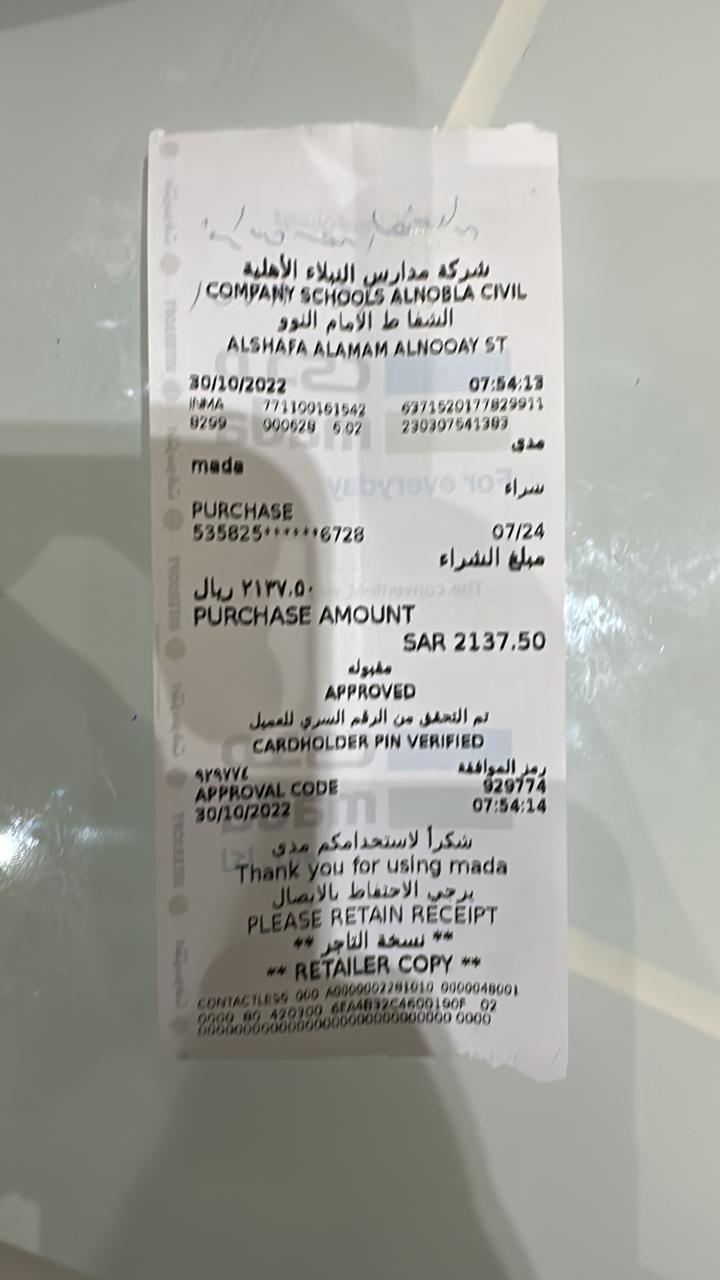 شركة مدارس النبلاء الأهلية
COMPANY SCHOOLS ALNOBLA CIVIL
الشفا ط الامام النوو
ALSHAFA ALAMAM ALNOOAY ST
30/10/2022 07:54:13
INMA 771100161542 6371520177829911
8299 000628 6.02 230307541383
مدى
mada
شراء
PURCHASE
535825******6728 07/24
مبلغ الشراء
٢١٣٧.٥٠ ريال
PURCHASE AMOUNT
SAR 2137.50
مقبوله
APPROVED
تم التحقق من الرقم السري للعميل
CARDHOLDER PIN VERIFIED
رمز الموافقة
٩٢٩٧٧٤ 929774
APPROVAL CODE
30/10/2022 07:54:14
شكراً لاستخدامكم مدى
Thank you for using mada
يرجي الاحتفاظ بالايصال
PLEASE RETAIN RECEIPT
** نسخة التاجر **
** RETAILER COPY **
CONTACTLESS 000 A0000002281010 0000048001
0000 80 420300 6FA4B32C4600190F 02